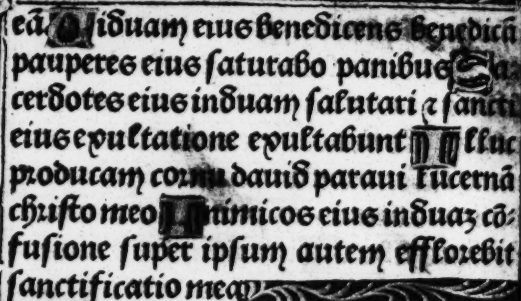 eā Uiduam eius benedicens benedicā
pauperes eius saturabo panibus Sa⸗
cerdotes eius induam salutari ⁊ sancti
eius exultatione exultabunt Illuc
producam cornu dauid paraui lucernā
christo meo Inimicos eius induaꝫ cō⸗
fusione super ipsum autem efflorebit
sanctificatio mea